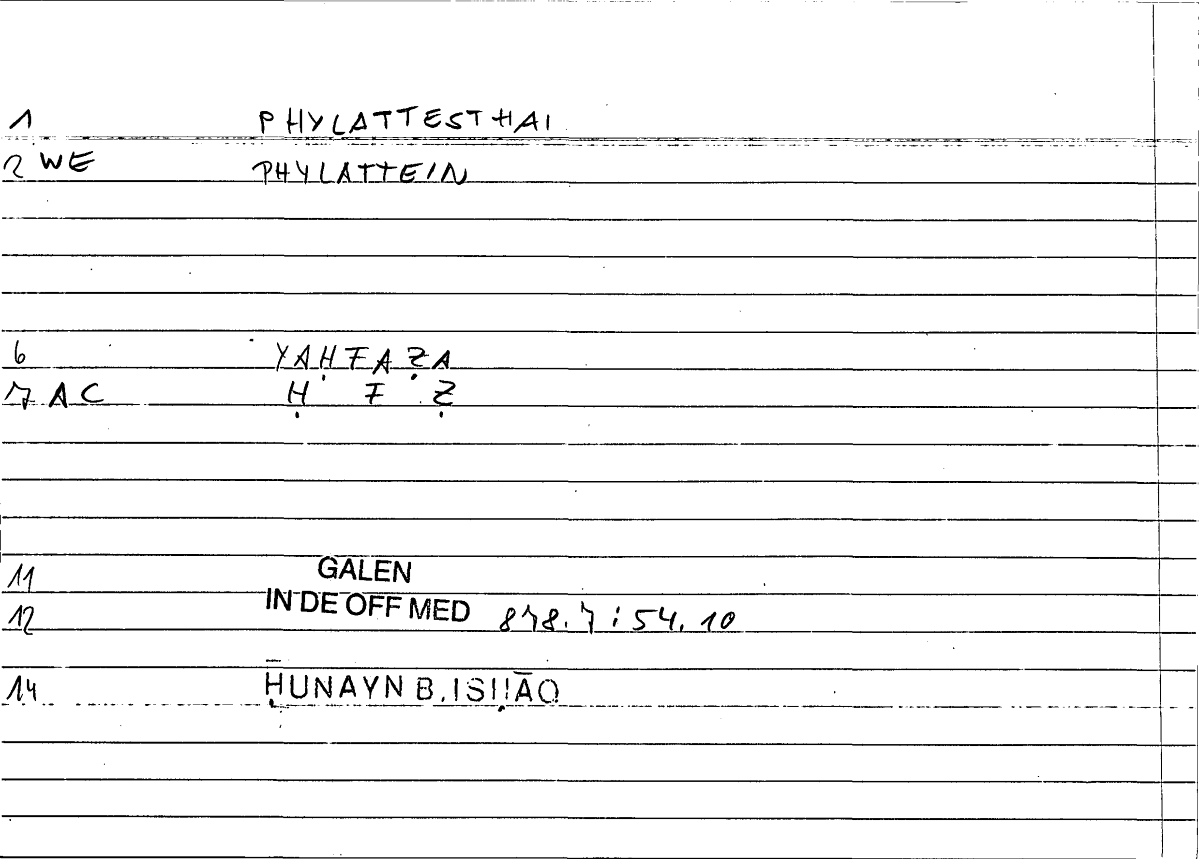 1 PHYLATTESTHAI
2 WE PHYLATTEIN
6 YAḤFAẒA
7 AC Ḥ F Ẓ
11 GALEN
12 IN DE OFF MED 878.7 : 54.10
14 ḤUNAYN B. ISḤĀQ